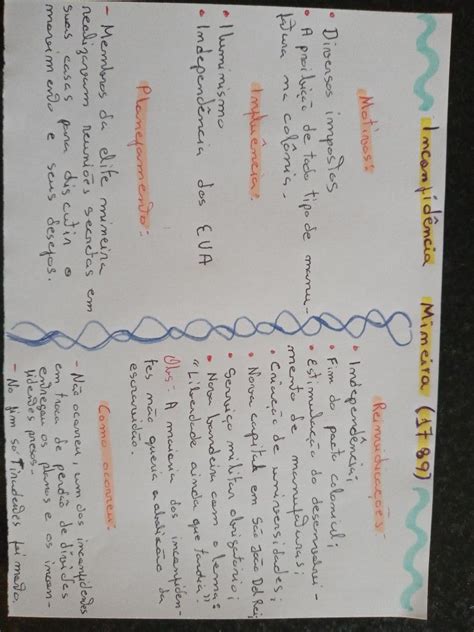 Inconfidência Mineira (1789)
Motivos:
• Diversos impostos
• A proibição de todo tipo de manu-
fatura na colônia.
Influência:
• Iluminismo
• Independência dos EUA
Planejamento:
- Membros da elite mineira
realizavam reuniões secretas em
suas casas para discutir o
movimento e seus desejos.
Reinvidicações:
• Independência;
• Fim do pacto colonial;
• Estimulação do desenvolvi-
mento de manufaturas;
• Criação de universidades;
• Nova capital em São João Del Rei;
• Serviço militar obrigatório;
• Nova bandeira com o lema:
"Liberdade ainda que tardia."
Obs: A maioria dos inconfiden-
tes não queria a abolição da
escravidão.
Como ocorreu:
- Não ocorreu, um dos inconfidentes
em troca de perdão de dívidas
entregou os planos e os incon-
fidentes presos.
- No fim só Tiradentes foi morto.